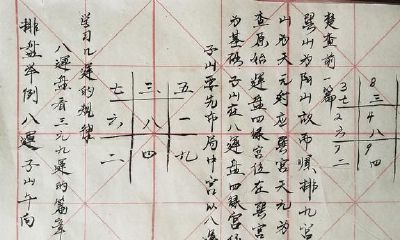 排盘举例八運子山午向
八運盘看三元九運的篇章
学习九運的規律
七 三 五
六 八 一
二 四 九
子山要先布局中宫以八運
为基础子山在八運盘四綠宫位
查原始運盘四綠宫位在巽宫
山为天元对应巽宫天元为
巽山为阳山故而順排九宫
查前一篇
3 8
七 三
2 4
六 八
7 9
二 四